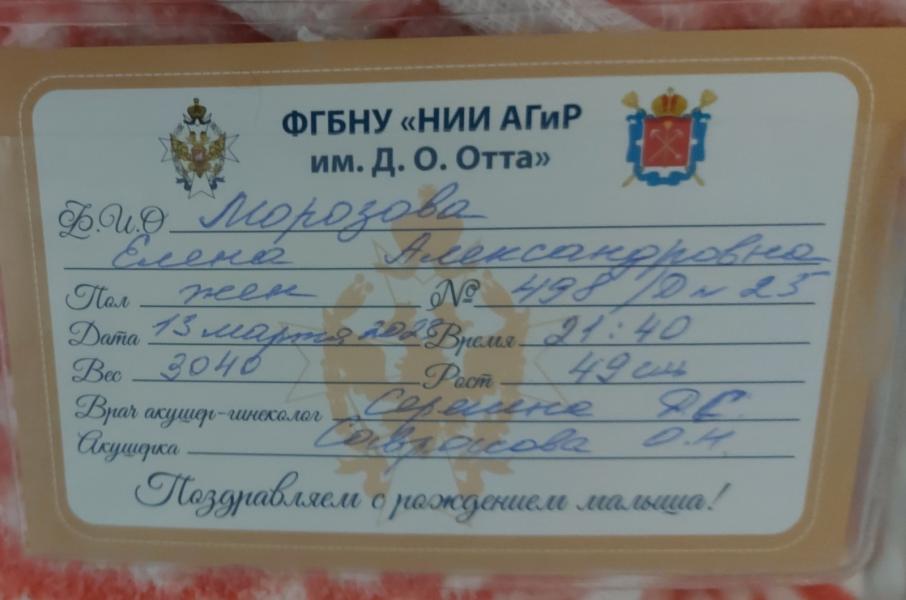 ФГБНУ «НИИ АГиР
им. Д. О. Отта»
Ф.И.О Морозова
Елена Александровна
Пол жен № 498 /Д
Дата 13 марта 2023 Время 21:40
Вес 3040 Рост 49 см
Врач акушер-гинеколог
Акушерка О.Н
Поздравляем с рождением малыша!